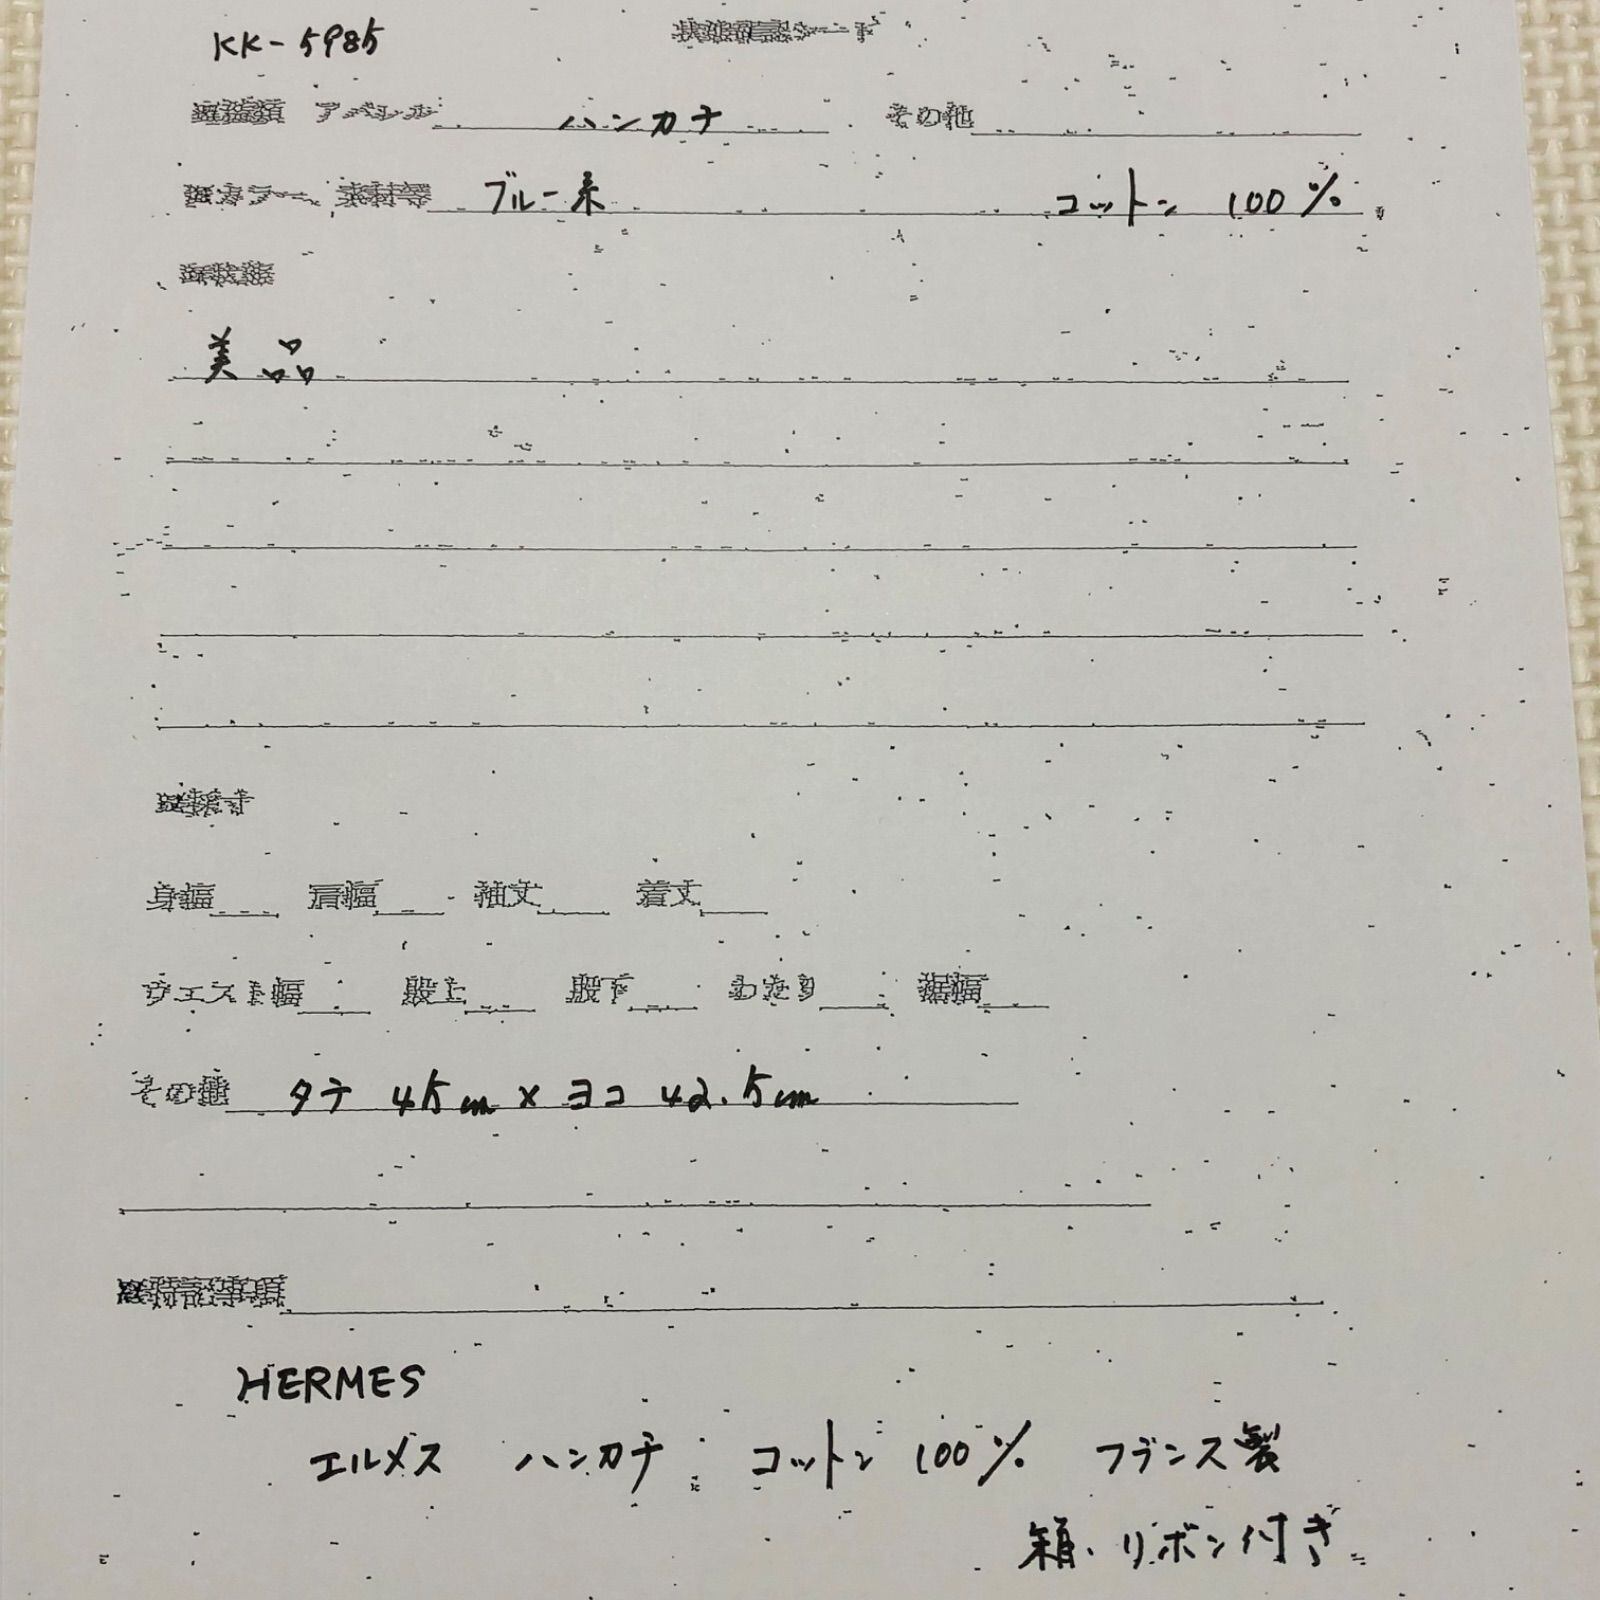 KK-5985
状態確認シート
アパレル ハンカチ その他
カラー、素材等 ブルー系 コットン 100%
美品
身幅 肩幅 袖丈 着丈
ウエスト幅 股上 股下 わたり 裾幅
その他 タテ 45cm × ヨコ 42.5cm
特記事項
HERMES
エルメス ハンカチ コットン 100% フランス製
箱・リボン付き